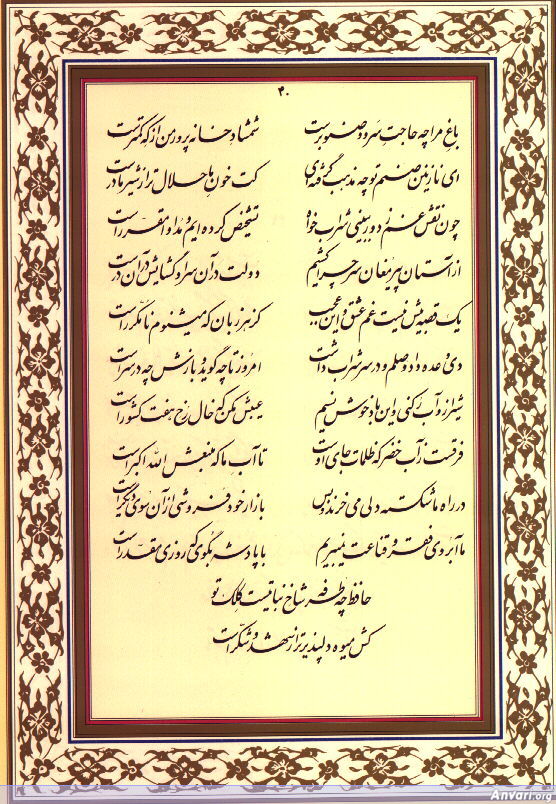 ۴۰
باغ مرا چه حاجت سرو و صنوبرست شمشاد خانه پرور من از که کمترست
ای نازنین صنم تو چه مذهب گرفته‌ای کت خون ما حلال تر از شیر مادرست
چون نقش غم ز دور ببینی شراب خواه تشخیص کرده ایم و مداوا مقررست
از آستان پیر مغان سر چرا کشیم دولت در آن سرا و گشایش در آن درست
یک قصه بیش نیست غم عشق و این عجب کز هر زبان که میشنوم نامکررست
دی وعده داد وصلم و در سر شراب داشت امروز تا چه گوید و بازش چه در سرست
شیراز و آب رکنی و این باد خوش نسیم عیبش مکن که خال رخ هفت کشورست
فرقست از آب خضر که ظلمات جای اوست تا آب ما که منبعش الله اکبرست
در راه ما شکسته دلی می خرند و بس بازار خود فروشی از آن سوی دیگرست
ما آبروی فقر و قناعت نمیبریم با پادشه بگوی که روزی مقدرست
حافظ چه طرفه شاخ نباتیست کلک تو
کش میوه دلپذیرتر از شهد و شکرست
Anvari.org